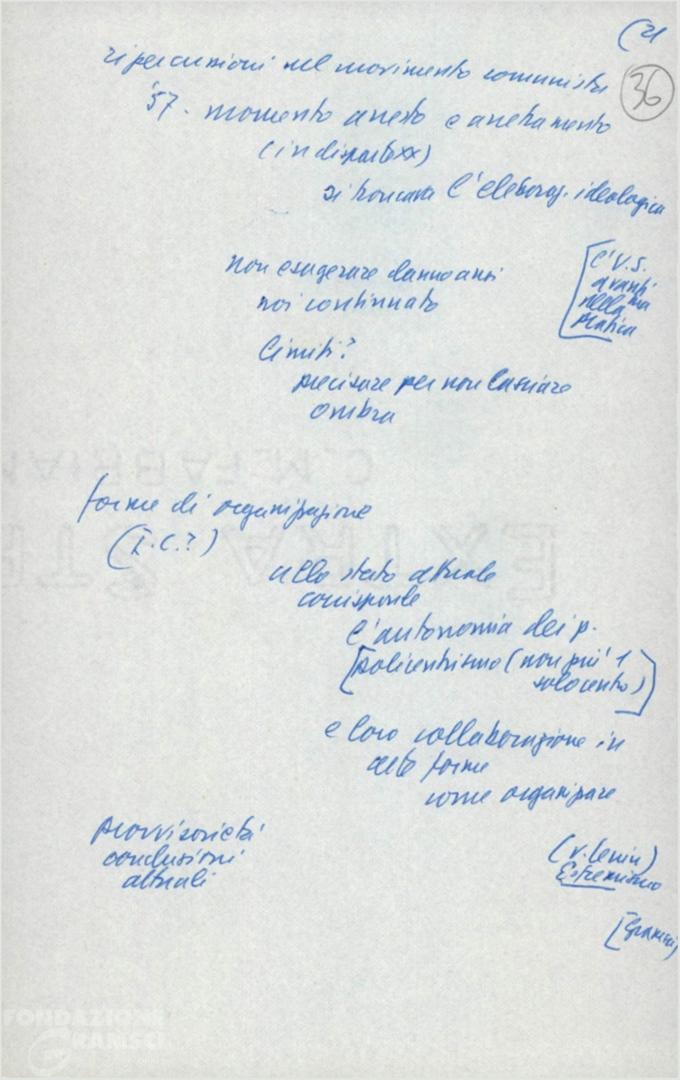 (21
36
ripercussioni nel movimento comunista
'57. momento arresto e arretramento
(in disparte xx)
si troncava l'elaboraz. ideologica
non esagerare danno anzi
noi continuato
[l'U.S.
avanti
nella ma
pratica
Limiti?
precisare per non lasciare
ombra
forme di organizzazione
(I.C.?)
allo stato attuale
corrisponde
l'autonomia dei p.
[policentrismo (non più 1
solo centro)]
e loro collaborazione in
date forme
come organizzare
provvisorietà
conclusioni
attuali
(v. Lenin)
Estremismo
[Gramsci]
FONDAZIONE
GRAMSCI